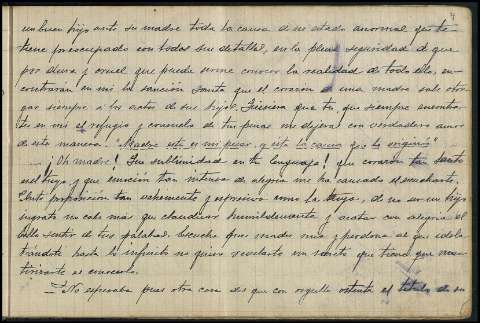 un buen hijo ante su madre toda la causa de un estado anormal que te
tiene preocupado con todos sus detalles, en la plena seguridad de que
por dura y cruel que pueda serme conocer la realidad de todo ello, en-
contrarán en mi la sanción santa que el corazón de una madre sabe otor-
gar siempre a los actos de sus hijos. Quisiera que tu que siempre encontra-
tes en mis el refugio y consuelo de tus penas me dejera con verdadero amor
de esta manera. "Madre este es mi pesar, y esta la causa que lo originó"
¡Oh madre! ¡Que sublimidad en tu lenguaje! que corazón tan santo
es el tuyo y que emoción tan intensa de alegria me ha causado el escucharte.
Ante proposición tan vehemente y expresiva como la tuya, de no ser un hijo
ingrato no cabe más que claudicar humildemente y acatar con alegria el
bello sentir de tus palabras. Escucha pues madre mia y perdona al que idola-
trándote hasta lo infinito no quiso revelarte un secreto que tiene que mar-
tirizarte al conocerlo.
No esperaba pues otra cosa de que con orgullo ostenta el título de su